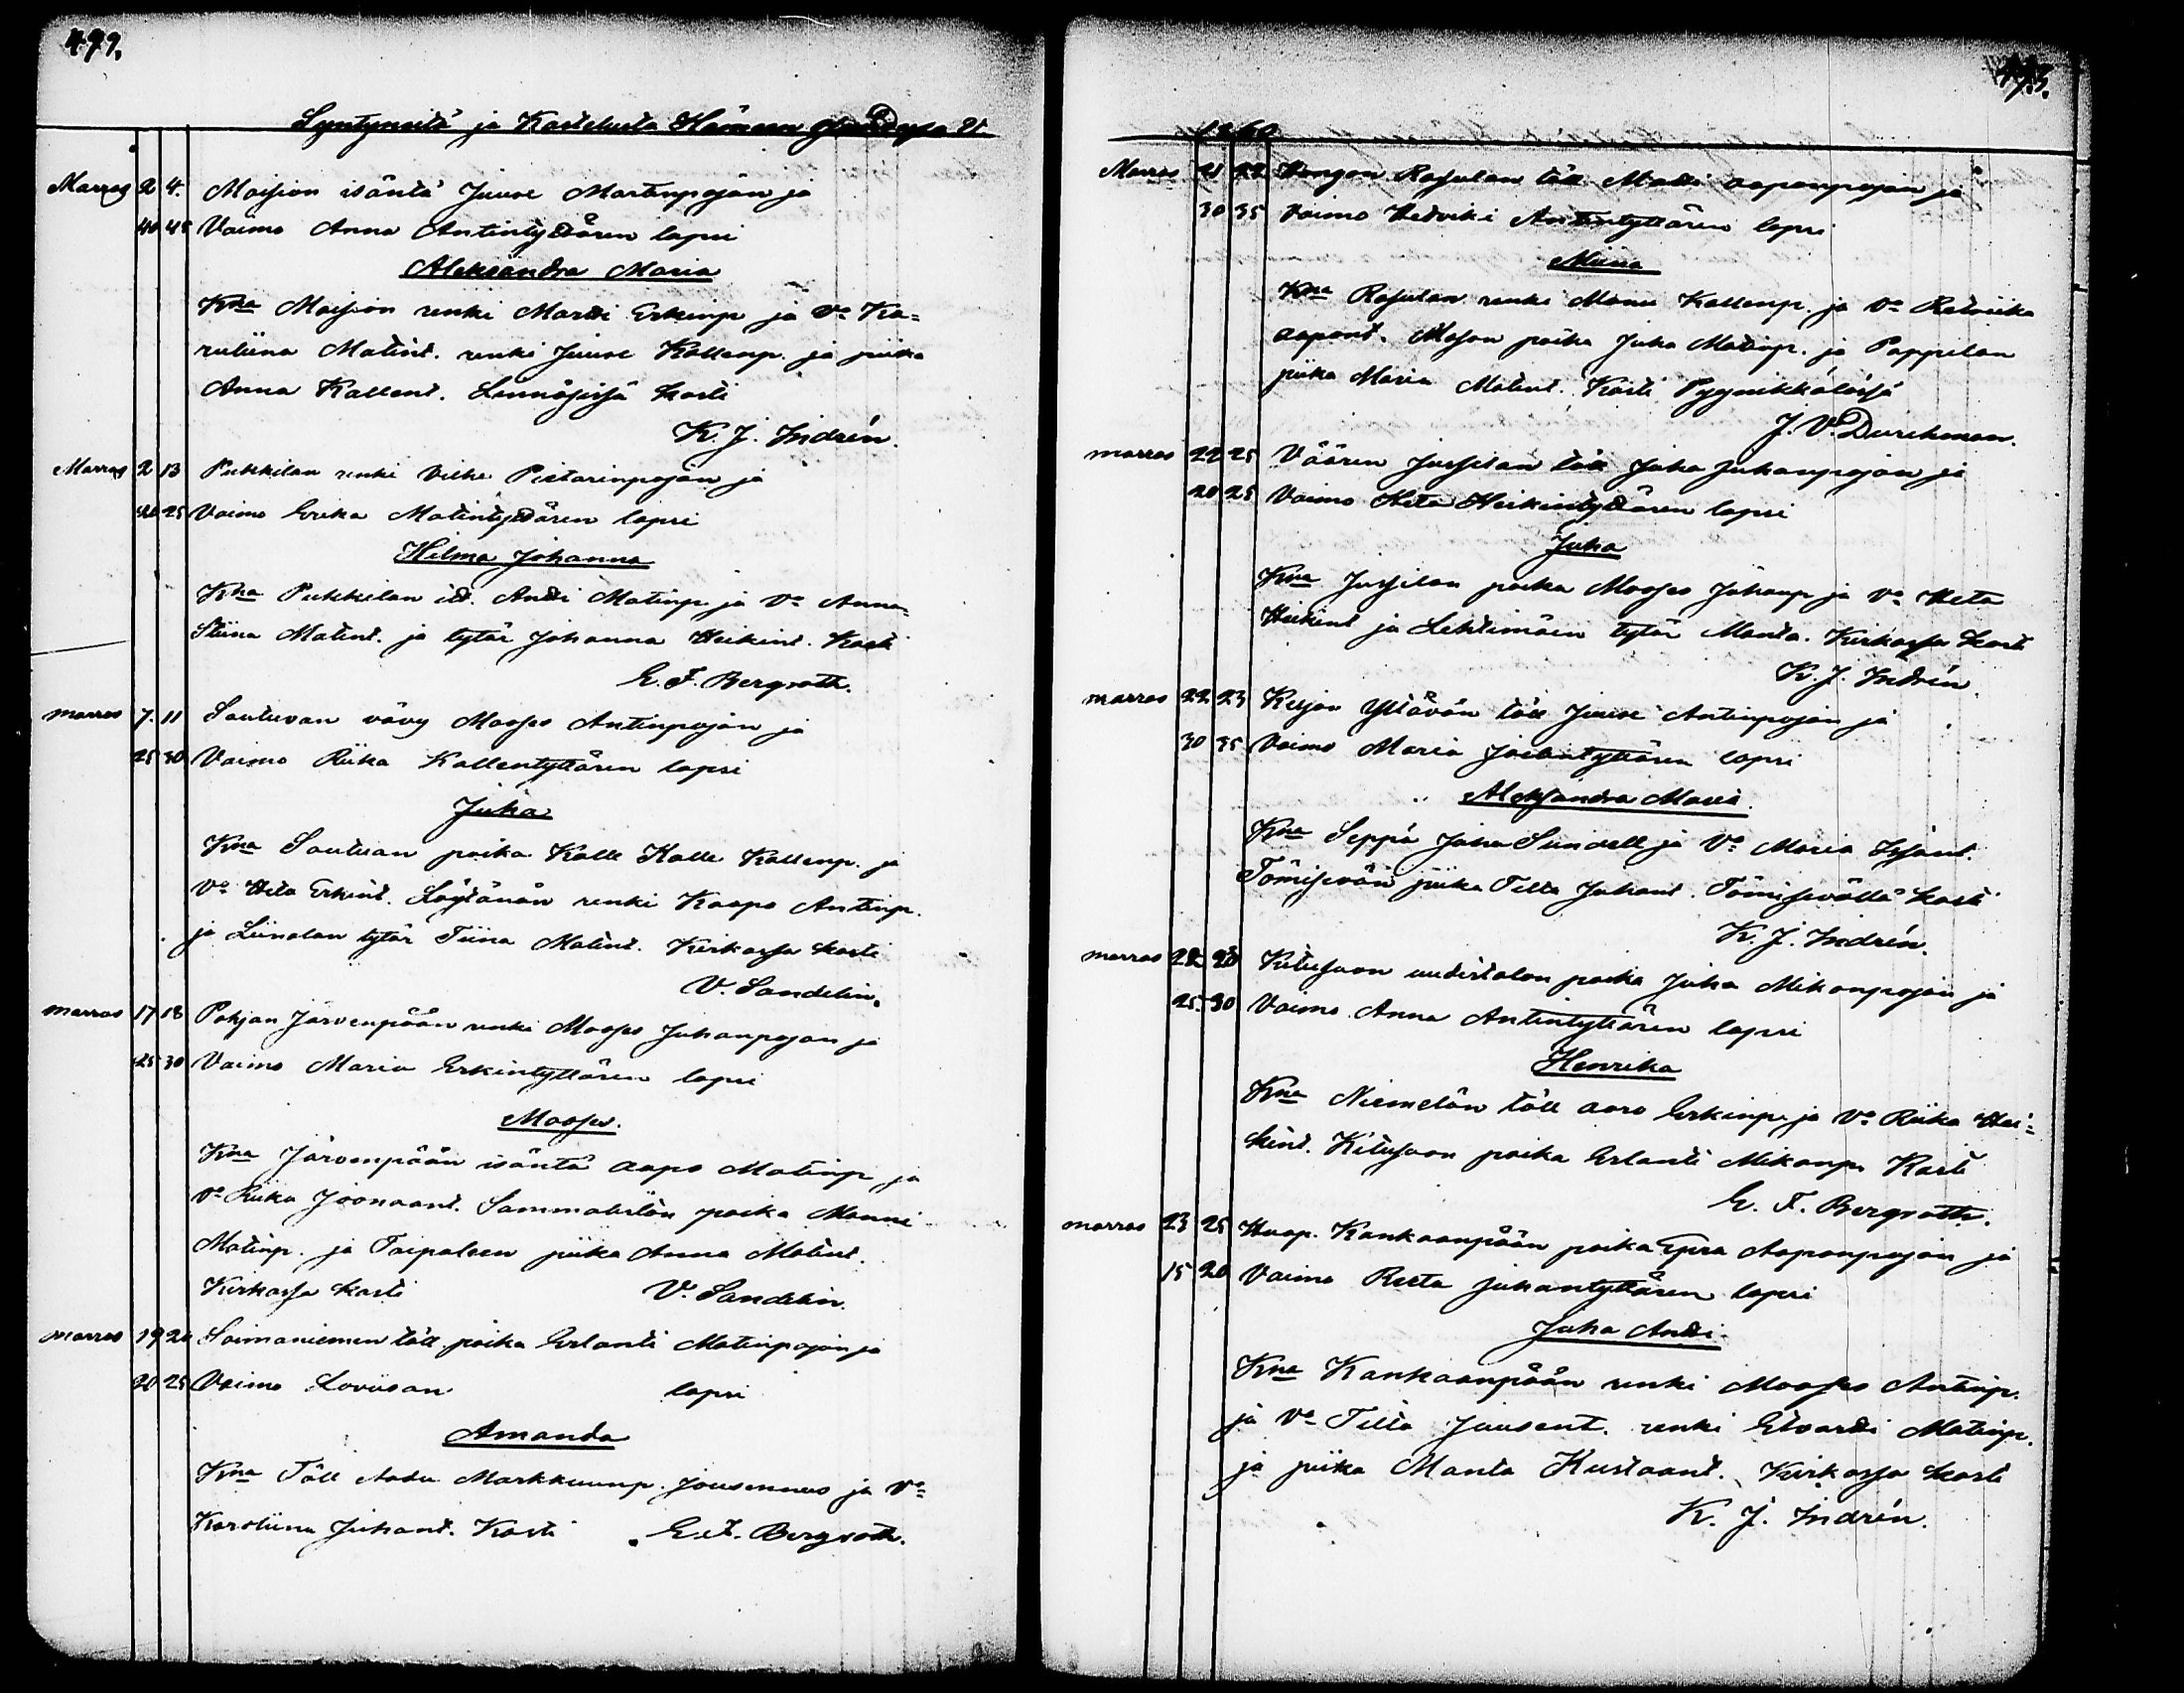 Syntyneitä ja Kastetuita Hämeen
Marras 2 4. Moision isäntä Juuse Martinpojan ja
40 45 Vaimo Anna Antintyttären lapsi
Aleksandra Maria
Kna Moision renki Martti Erkinp ja Vo Ka=
ruliina Matint. renki Juuse Kallenp. ja piika
Anna Kallent. Lannäsissä kasti
K. J. Indrén.
Marras 2 13 Pukkilan renki Vilhe Pietarinpojan ja
20 25 Vaimo Eveka Matintyttären lapsi
Hilma Johanna
Kna Pukkilan Antti Matinp. ja Vo Anna
Stiina Matint. ja tytär Johanna Heikint. Kasti
E. F. Bergroth.
marras 7. 11 Sautuvan vävy Mooses Antinpojan ja
25 30 Vaimo Riika Kallentyttären lapsi
Juha
Kna Sautuan poika Kalle Kalle Kallenp. ja
Vo Heta Erkint. Löytänän renki Kaapo Antinp.
ja Liinalan tytär Tiina Matint. Kirkossa kasti
V. Sandelin.
marras 17 18 Pohjan Järvenpään renki Mooses Juhanpojan ja
25 30 Vaimo Maria Erkintyttären lapsi
Mooses.
Kna Järvenpään isäntä aapo Matinp. ja
Vo Riika Joonaant. Sammaliston poika Manni
Matinp. ja Taipaleen piika Anna Matint.
Kirkossa kasti V. Sandelin.
marras 19 20 Saimaniemen töll. poika Erlanti Matinpojan ja
20 25 Vaimo Loviisan lapsi
Amanda
Kna Töll Aadu Markkuunp. Jousennus ja Vo
Karoliina Juhant. Kasti E. F. Bergroth.
1860
Marras 21 22 Kongon Rajulan töll Matti aaponpojan ja
30 35 Vaimo Hedviki Antintyttären lapsi
Miina
Kna Rajulan renki Manu Kallenp. ja Vo Retriika
aapont. Mason poika Juha Matinp. ja Pappilan
piika Maria Matint. Kasti Pyynikkälässä
J. V. Durchman.
marras 22 25 Väären Jussilan töll Juha Juhanpojan ja
20 25 Vaimo Heta Heikintyttären lapsi
Juha
Kna Jussilan poika Mooses Juhanp ja Vo Heta
Heikint ja Lehtimäen tytär Manta. Kirkossa kasti
K. J. Indrén.
marras 22 23 Keljon Yttävän töll Juuse Antinpojan ja
30 35 Vaimo Maria lapsi
Aleksandra Maria
Kna Seppä Juha Sundell ja Vo Maria
Tömisevän piika Tilta Juhant. Tömisevällä kasti
K. J. Indrén.
marras Kitusuon uudistalon poika Juha Mikonpojan ja
25 30 Vaimo Anna Antintyttären lapsi
Henrika
Kna Niemelän töll aaro Erkinp. ja Vo Riika Hei=
kint. Kitusuon poika Erlanti Mikonp. Kasti
E. F. Bergroth.
marras 23 25 Haap. Kankaanpään poika Epra Aaponpojan ja
15 20 Vaimo Reeta Juhantyttären lapsi
Juha Antti
Kna Kankaanpään renki Mooses Antinp.
ja Vo Tilta Juusent. renki Edvardi Matinp.
ja piika Manta Kustaant. Kirkossa kasti
K. J. Indrén.